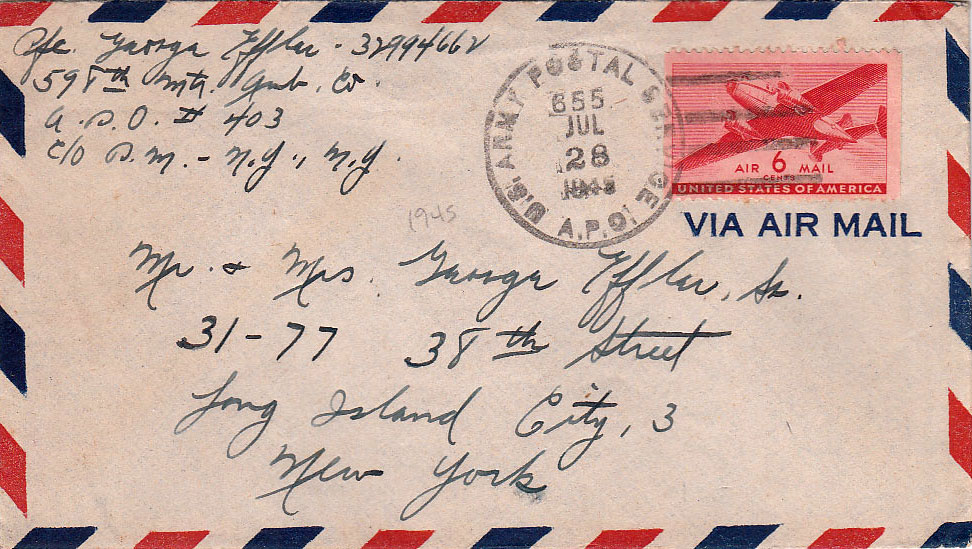 Pfc. George Effler - 32994662
598th Mtr. Amb. Co.
A.P.O. # 403
c/o P.M. - N.Y., N.Y.
U.S. ARMY POSTAL SERVICE
655
JUL
28
1945
A.P.O.
AIR 6 MAIL
CENTS
UNITED STATES OF AMERICA
VIA AIR MAIL
1945
Mr. & Mrs. George Effler, Sr.
31-77 38th Street
Long Island City, 3
New York